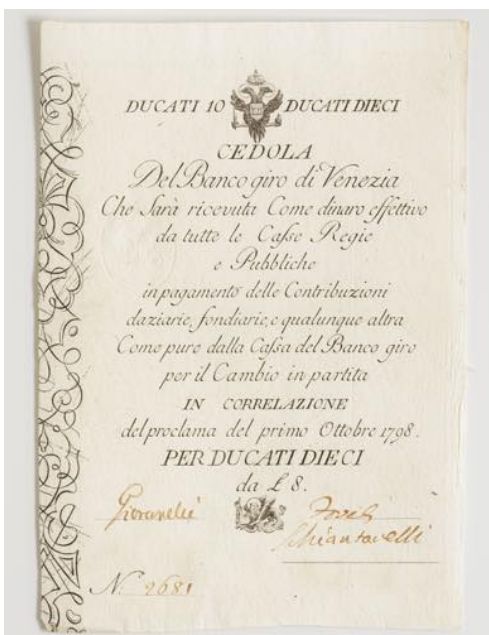 DUCATI 10 DUCATI DIECI
CEDOLA
Del Banco giro di Venezia
Che Sarà ricevuta Come dinaro effettivo
da tutte le Casse Regie
e Pubbliche
in pagamento delle Contribuzioni
daziarie, fondiarie, e qualunque altra
Come pure dalla Cassa del Banco giro
per il Cambio in partita
IN CORRELAZIONE
del proclama del primo Ottobre 1798.
PER DUCATI DIECI
da £ 8.
Giovanelli
N. 2681